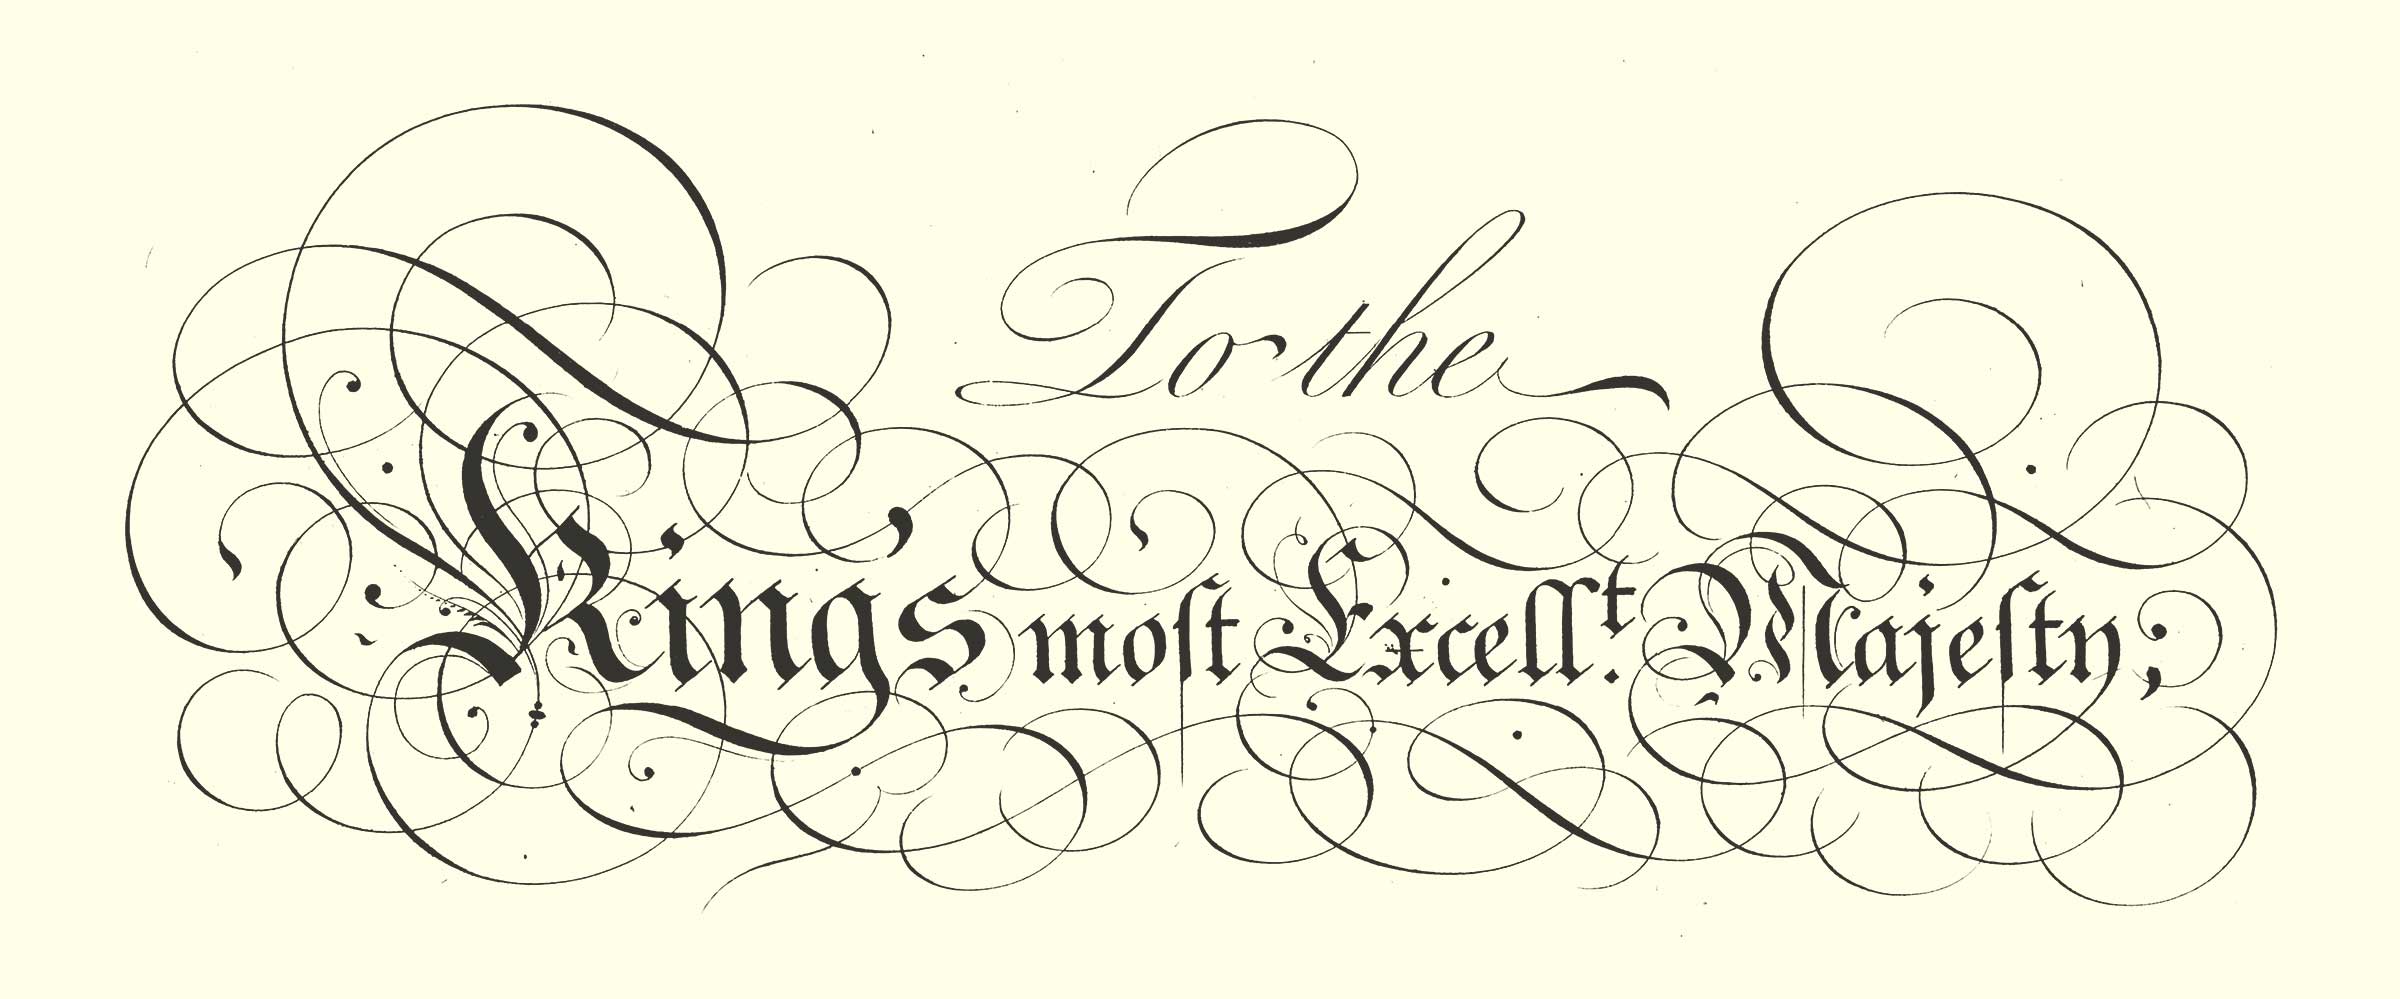 To the
King's moſt Excellt. Majeſty;